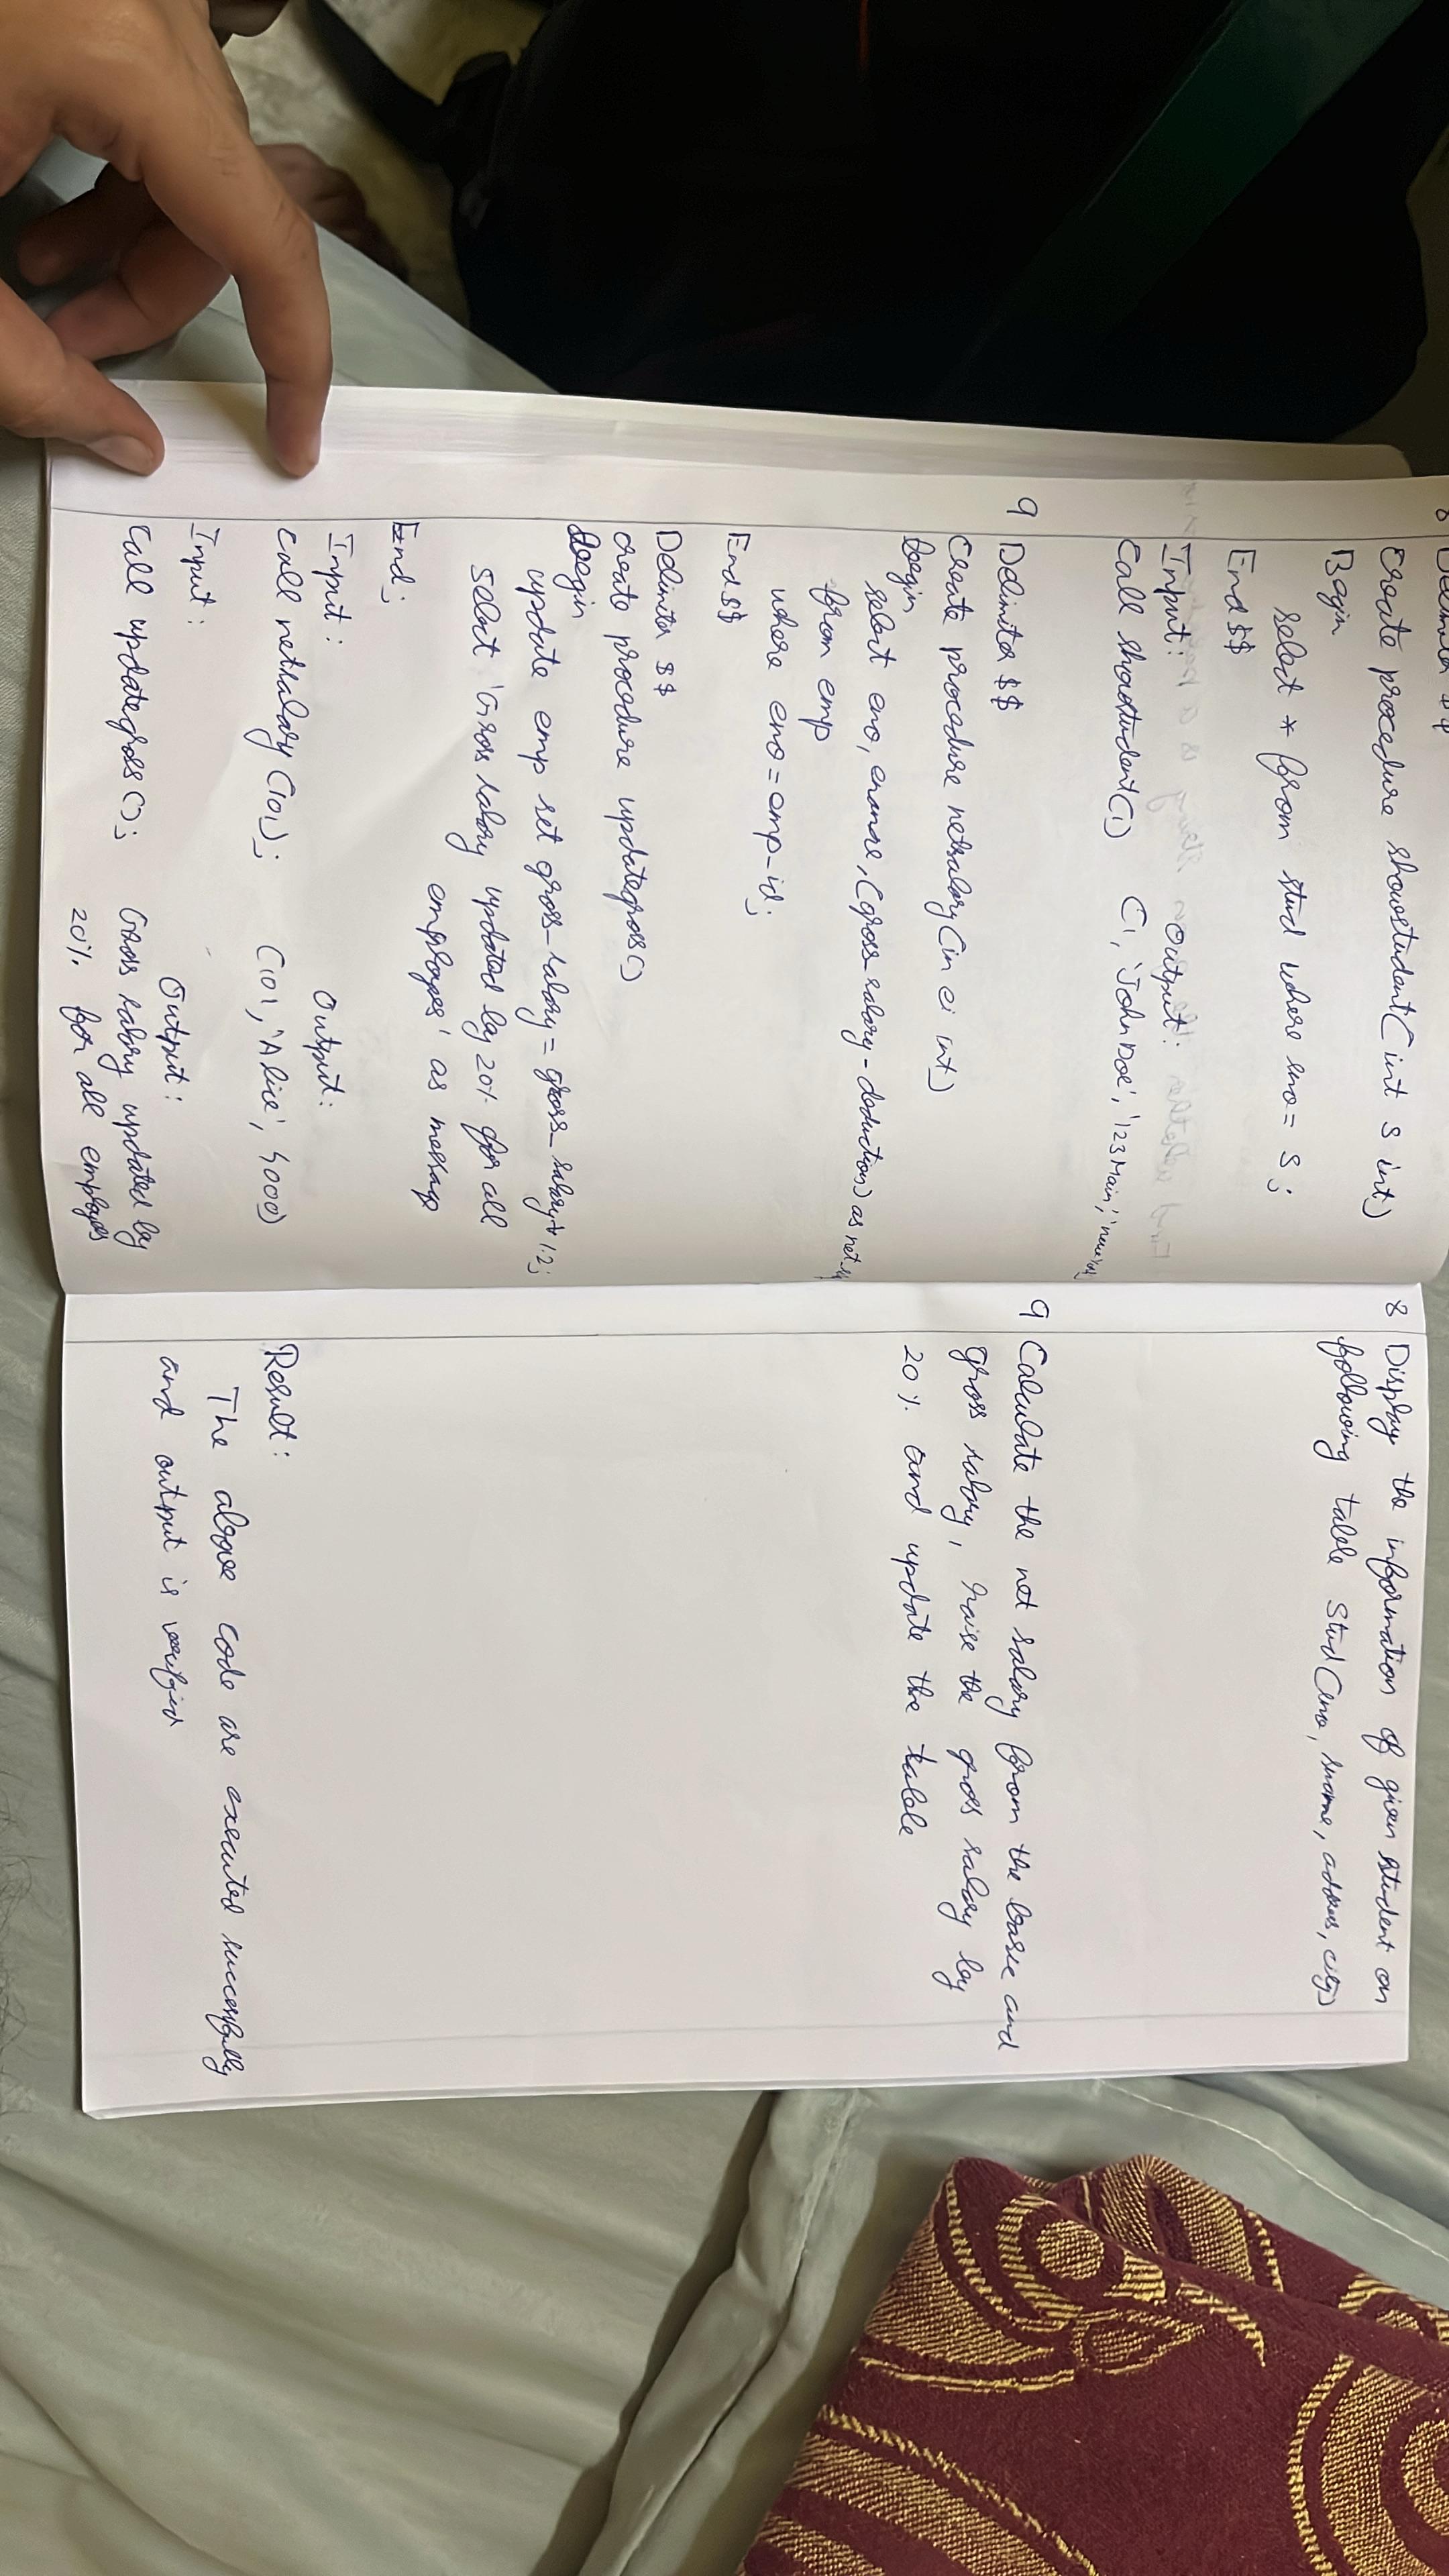 8 Delimiter $$
Create procedure showstudent(int s int)
Begin
select * from stud where sno = s;
End $$
Input: Output:
call showstudent(1) (1, 'John Doe', '123 Main',
9 Delimiter $$
Create procedure netsalary(in ei int)
begin
select eno, ename, (gross_salary - deduction) as
from emp
where eno = emp_id;
End $$
Delimiter $$
create procedure updategross()
begin
update emp set gross_salary = gross_salary * 1.2;
select 'Gross salary updated by 20% for all
employees' as message
End;
Input: Output:
call netsalary(101); (101, 'Alice', 4000)
Input: Output:
call updategross(); Gross salary updated by
20% for all employees
8 Display the information of given student on
following table Stud(sno, sname, address, city)
9 Calculate the net salary from the basic and
gross salary, raise the gross salary by
20% and update the table
Result:
The above code are executed successfully
and output is verified